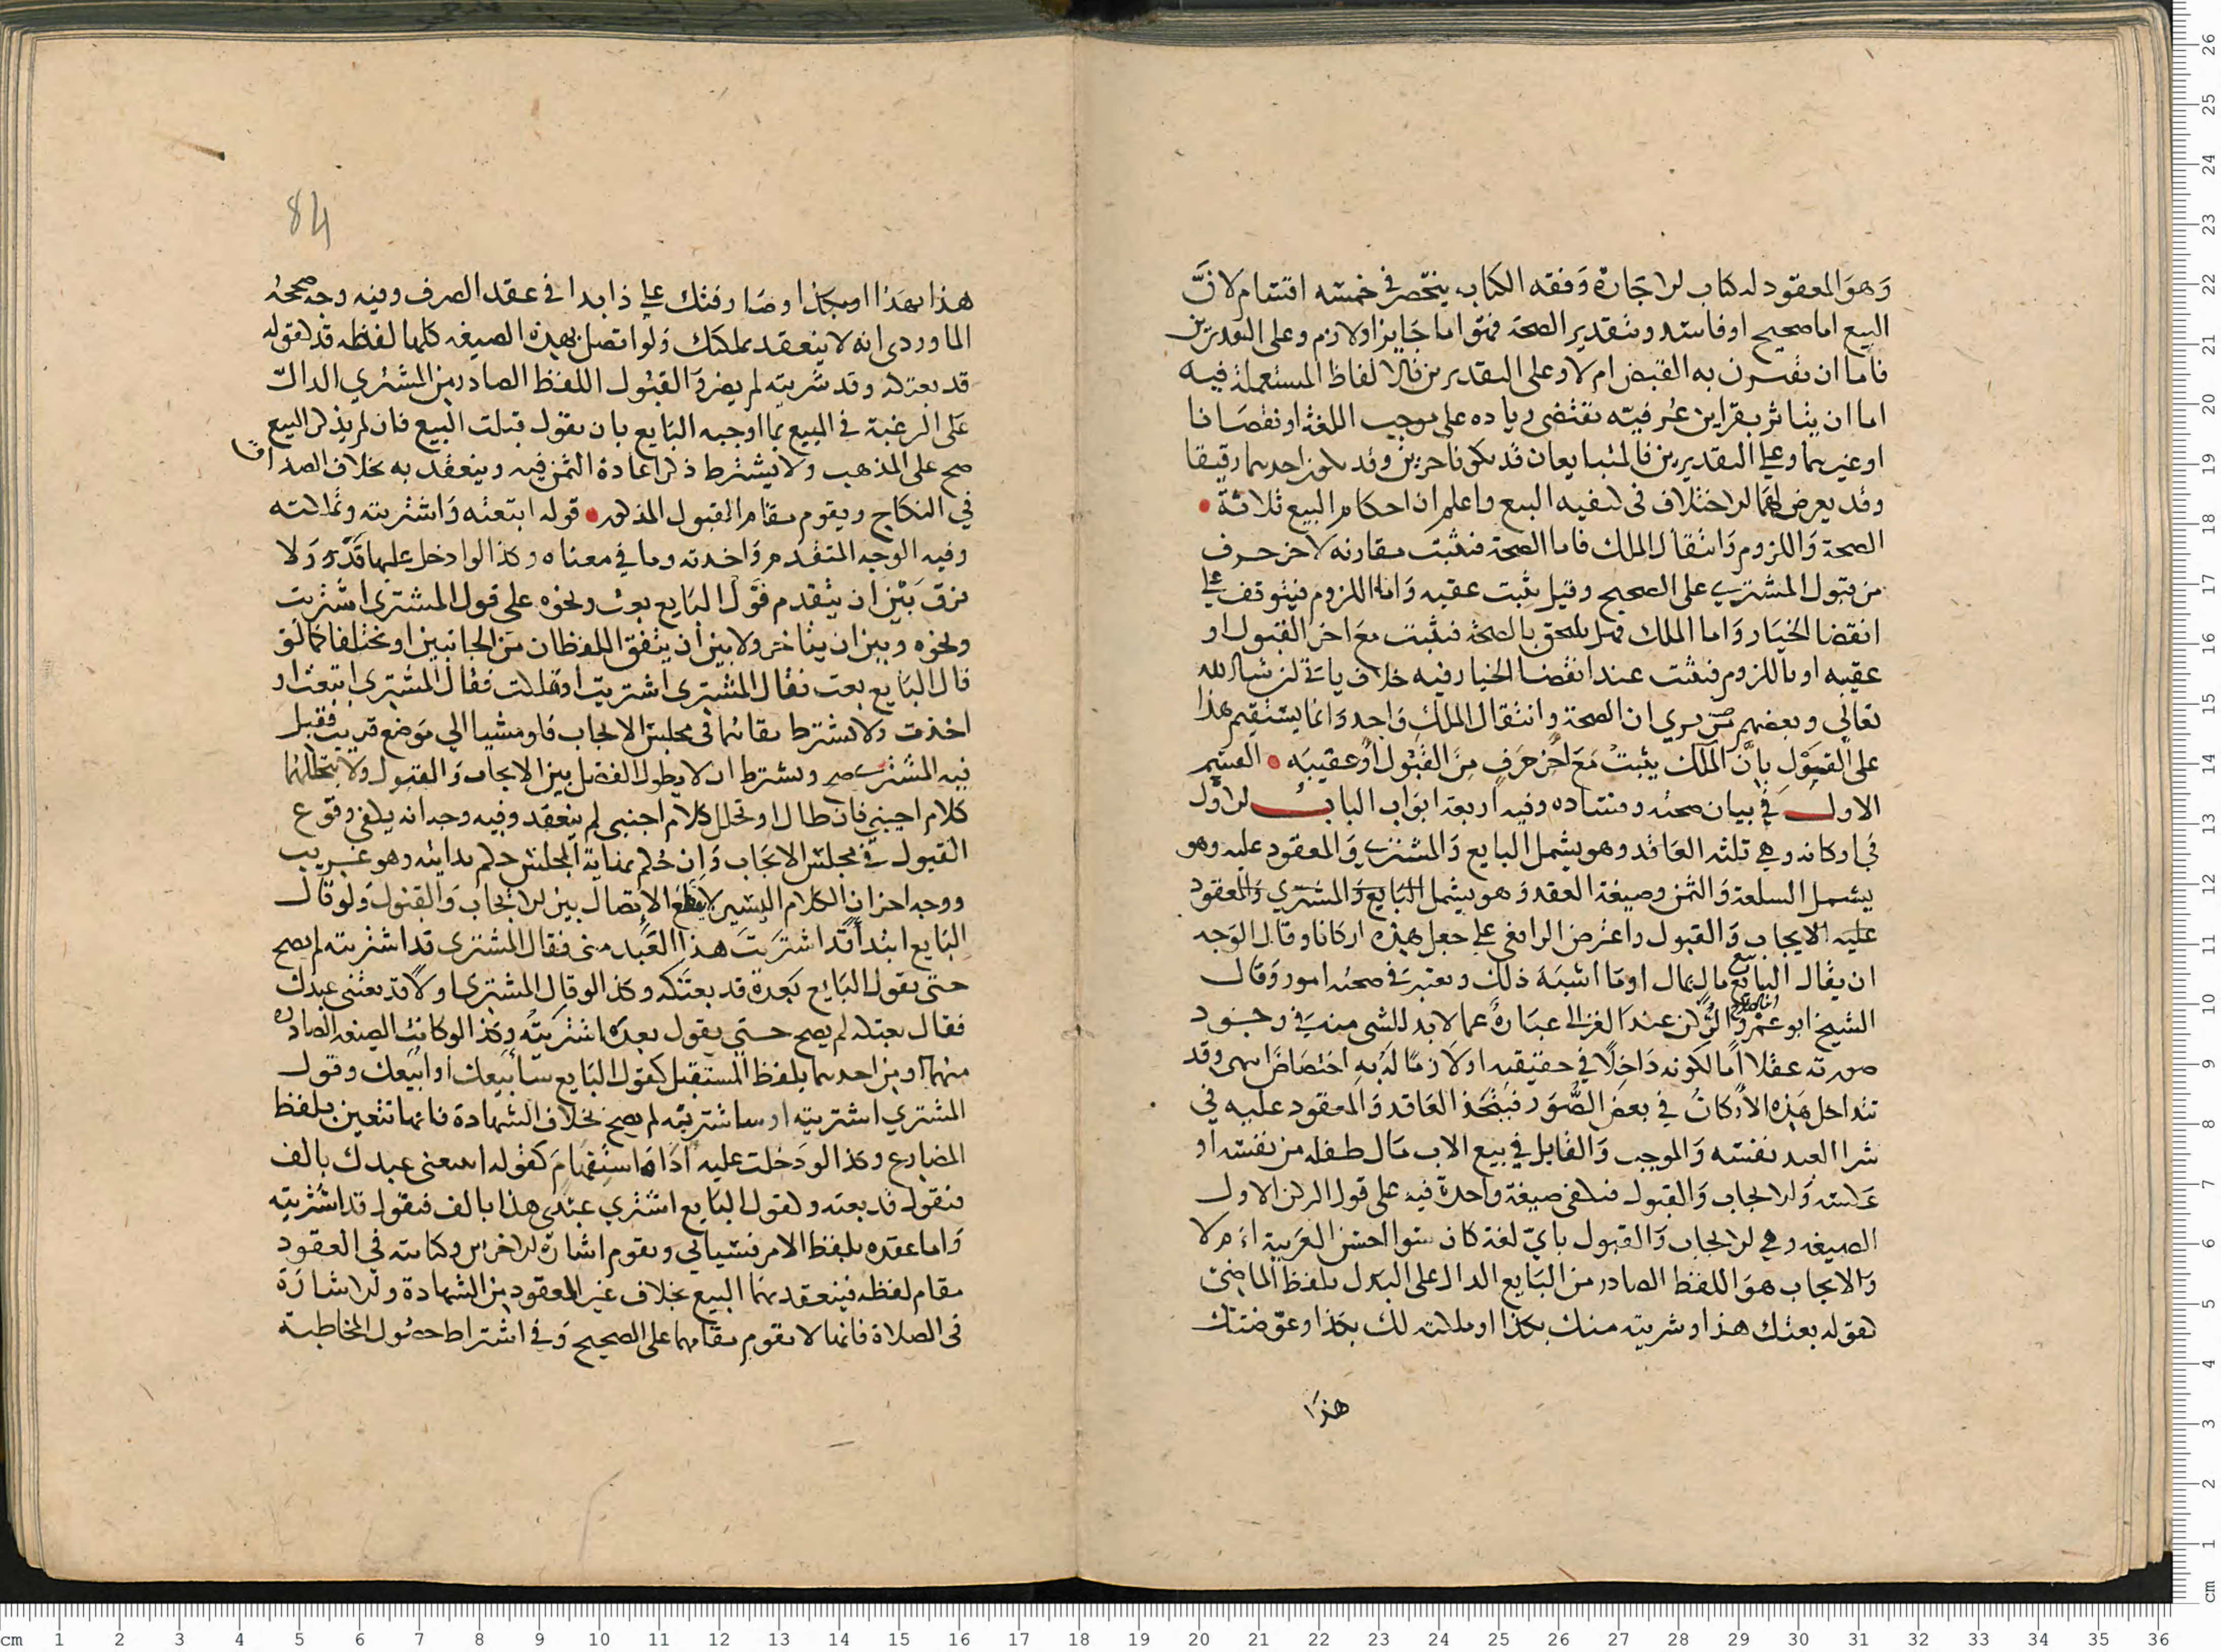 وَهوَ المعقود له كتاب الاجَارة وَفقه الكتاب ينحصر في خمسه اقتسام لانَّ
البيع اما صحيح او فاسد وبتقدير الصحة فهو اما جَايز او لازم وعلى التقديرين
فأما ان يقترن به القبض ام لا وعلى التقديرين فالالفاظ المستعملة فيه
اما ان يتاثر بقراين عُرفيّه تقتضى زياده على موجب اللغة او نقصَانا
او غيرهما وعلى التقديرين فالمتبايعان قد يكونا حرين وقد يكون احدهما رقيقا
وقد يعرض لهمَا الاختلاف فى كيفيه البيع واعلم ان احكام البيع ثلاثة
الصحة وَاللزوم وَانتقال الملك فاما الصحة فتثبت مقارنه لاخر حرف
من قبول المشتري على الصحيح وقيل يثبت عقيبه وَاما اللزوم فيتوقف على
انقضا الخيَار وَاما الملك فهل يلحق بالصحة فيثبت معَ اخر القبول او
عقيبه او باللزوم فيثبت عند انقضا الخيار فيه خلاف ياتي ان شا الله
تعالى وبعضهم من يري ان الصحة وانتقال الملك وَاحد وَانما يستقيم هذا
على القبَوْلِ بانَّ الملك يثبتْ مَعَ اخر حَرَفٍ مِنَ القبُول اَوْ عقيبَه القسم
الاول في بيان صحته وفساده وفيه اربعة ابَواب الباب الاوَّل
في اركانه وهي ثلثه العَاقد وهو يشمل البايع وَالمشتري وَالمعقود عليه وهو
يشمل السلعة وَالثمن وصيغة العقد وَهو يشمل البَايع وَالمشتري وَالمعقود
عليه الايجاب وَالقبول واعترض الرافعي على جعل هذه اركانا وقال الوَجه
ان يقال البايع مال بمال اومَا اشبَهَ ذلك ويعتبر في صحته امور وَقال
الشيخ ابو عمْرو الركن عند الغزالي عبَارةٌ عما لابد للشى منه في وجود
صورته عقلا اَما لكونه دَاخِلًا في حقيقته او لاَزمًا لهُ به اختصَاصَ وقد
تتداخل هَذِه الاَركانُ في بعض الصُّوَر فيتحد العَاقد وَالمعقود عليه في
شرا العبد نفسه وَالموجب وَالقابل في بيع الاب مَال طفله من نفسه او
عَكسه وَالايجاب وَالقبول فيكفى صيغة واحدة فيه على قول الركن الاول
الصيغه وهي الايجاب وَالقبول بايّ لغة كان سوا احسن العَربية اَم لا
وَالايجاب هوَ اللفظ الصادر من البَايع الدال على البدل بلفظ الماضي
كقوله بعتك هذا وشريته منك بكذا او ملكته لك بكذا وعَوّضتك
هذا
84
هذا بهَذا او بكذا وصَارفتك على ذا بذا في عقد الصرف وفيه وجه صححه
الماوردى انه لا ينعقد بملكتك وَلو اتصل بهذه الصيغه كلها لفظه قد كقوله
قد بعتكه وقد شَريته لم يضر وَالقبُول اللفظ الصادر من المشتري الدال
على الرغبة في المبيع بما اوجبه البَايع بان يقول قبلت البيع فان لم يذكر البيع
صح على المذهب ولا يشترط ذكر اعادة الثمن فيه وينعقد به بخلاف الصداق
في النكاح ويقوم مقام القبول المذكور قوله ابتعته وَاشتريته وتملكته
وفيه الوجه المتقدم وَاخذته وما في معناه وكذا لوا دخل عليها قد وَلا
فرق بَيْن ان يتقدم قوَل البَايع بعت ونحوه على قول المشترى اشتريت
ونحوه وبين ان يتاخر ولا بين ان يتفق اللفظان من الجانبين او يختلفا كما لو
قال البَايع بعت فقال المشترى اشتريت او تملكت فقال المشترى ابتعت او
اخذت ولا يشترط بقائهما فى مجلس الايجاب فلو مشيا الي مَوضع قريب فقبل
فيه المشتري صح ويشترط ان لا يطول الفصل بين الايجاب وَالقبول وَلا يتخللهما
كلام اجنبي فان طال او تخلل كلام اجنبى لم ينعقد وفيه وجه انه يكفى وقوع
القبول في مجلس الايجَاب وَاِن حُكم بنهاية المجلس حكم بدايته وهو غريب
ووجه اخر ان الكلام اليسير لا يقطع الاتصال بين الايجَاب وَالقبول وَلو قال
البَايع ابتداً قد اشترَيتَ هذا العَبد منى فقال المشترى قد اشتريته لم يصح
حتى يقول البَايع بَعدهُ قد بعتكه وكذا لو قال المشترى اولاً قد بعتنى عبدك
فقال بعتكه لم يصح حتى يقول بعدَه اشتريتُه وكذا لو كانت الصيغه الصادره
منهما او من احدهما بلفظ المستقبل كقول البَايع سَاَبيعك او ابيعك وقول
المشتري اشتريته او ساشتريه لم يصح بخلاف الشهادة فانها تتعين بلفظ
المضارع وكذا لو دَخلت عليه ادَاة استفهامَ كقوله اتبيعنى عبدك بالف
فيقول قد بعته وكقول البَايع اشتري عبدى هذا بالف فيقول قد اشتريته
وَاما عقده بلفظ الامر فسيأتي ويقوم اشارة الاخرس وكتابته في العقود
مقام لفظه فينعقد بهمَا البيع بخلاف غير العقود من الشهادة والاشارَة
فى الصلاة فانها لا تقوم مقامها على الصحيح وَفي اشتراط حصُول المخاطبة